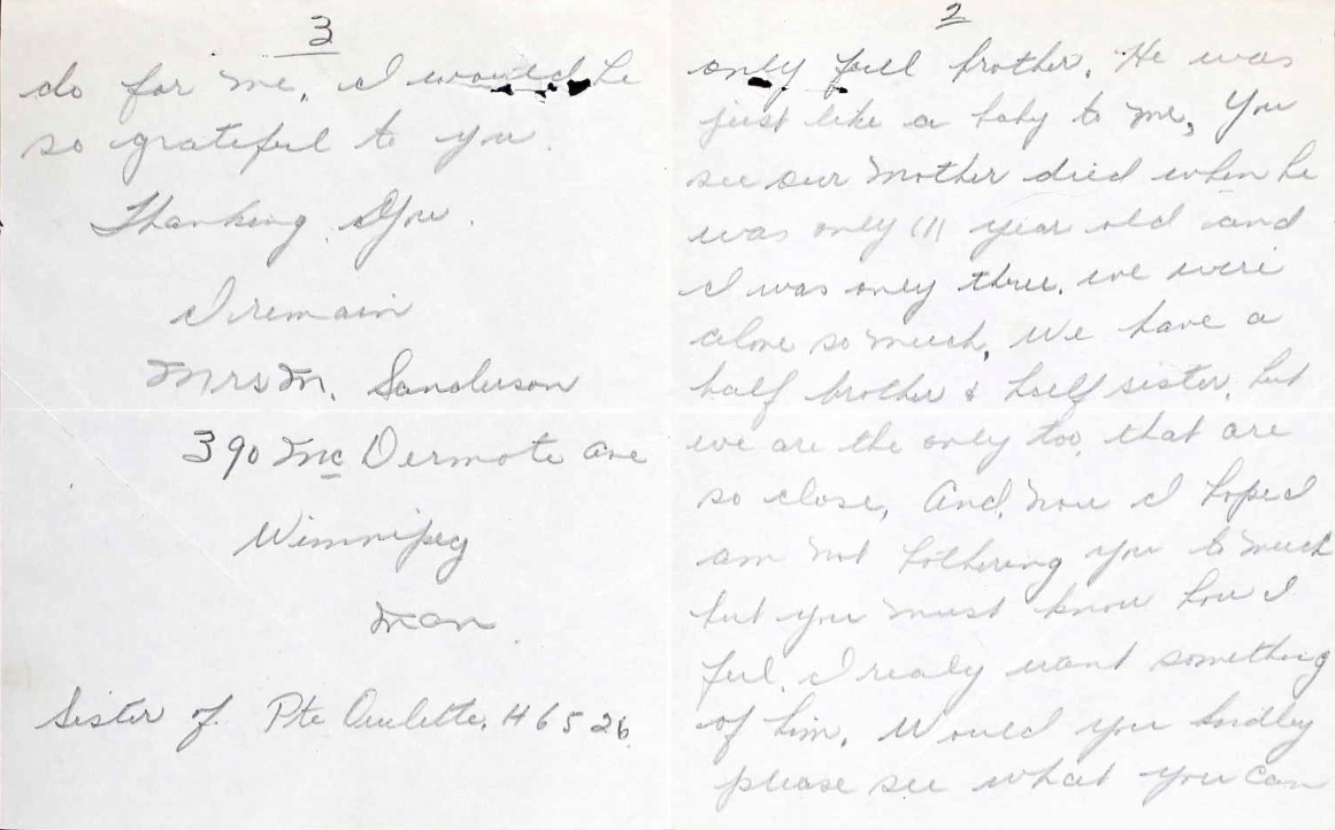 2
only full brother. He was
just like a baby to me, You
see our Mother died when he
was only (1) year old and
I was only three. we were
alone so much, We have a
half brother & half sister. but
we are the only too, that are
so close, And. now I hope I
am not bothering you to much
but you must know how I
feel. I realy want something
of him. Would you kindley
please see what you can
3
do for me. I would be
so grateful to you.
Thanking You.
I remain
Mrs M. Sanderson
390 Mc Dermote ave
Winnipeg
Man.
Sister of Pte Oulette. H 6526